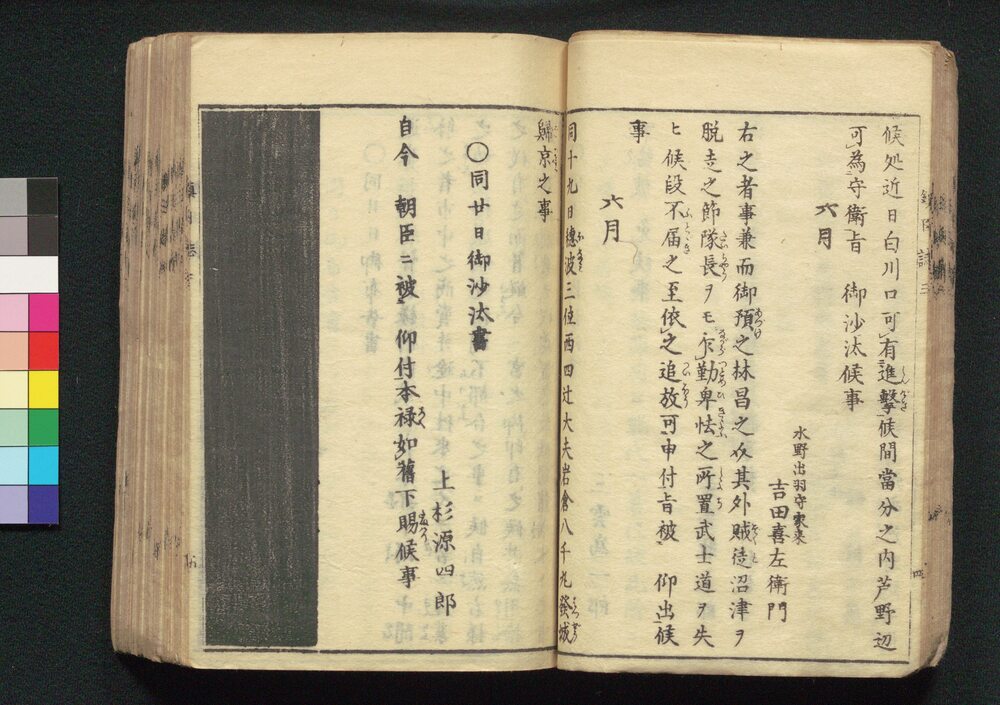 候処近日白川口可有進撃候間當分之内芦野辺
可為守衛旨　御沙汰候事
六月
水野出羽守家来
吉田喜左衛門
右之者事兼而御預之林昌之及其外賊徒沼津ヲ
脱走之節隊長ヲモ乍勤卑怯之所置武士道ヲ失
ヒ候段不届之至依之追放可申付旨被　仰出候
事
六月
同十九日穂波三位西四辻大夫岩倉八千丸發城
歸京之事
〇同廿日御沙汰書
上杉源四郎
自今　朝臣ニ被　仰付本禄如舊下賜候事